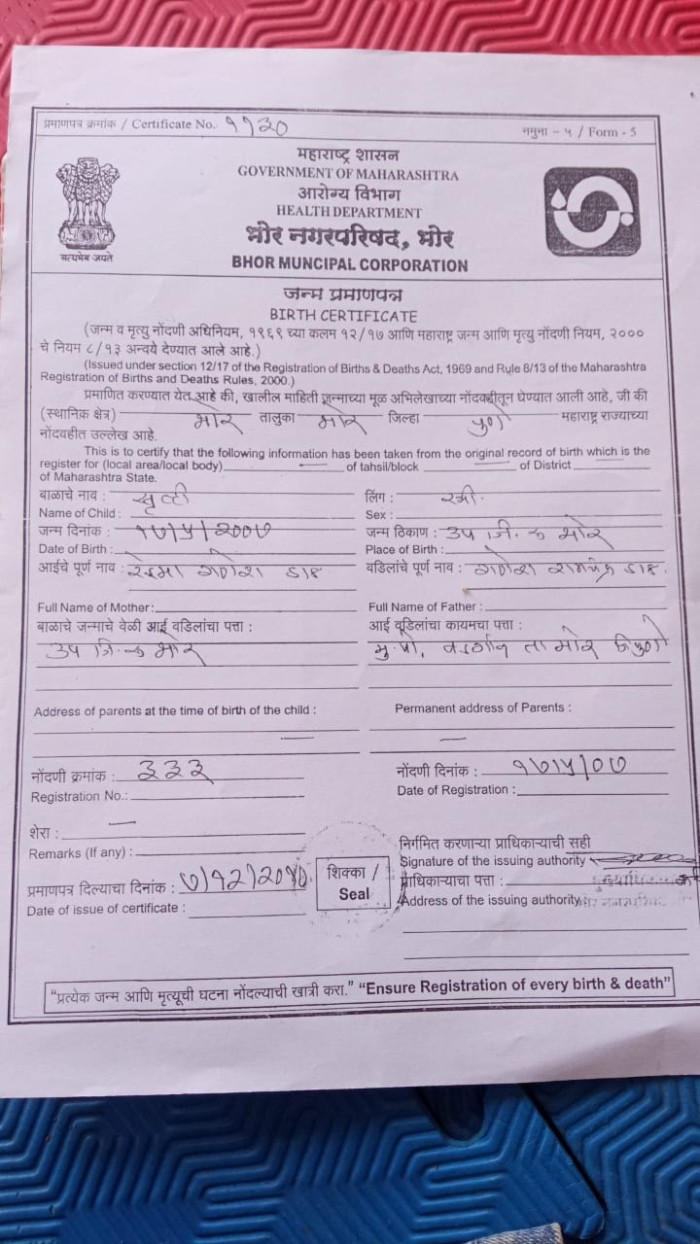 प्रमाणपत्र क्रमांक / Certificate No. ११३० नमुना - ५ / Form - 5
महाराष्ट्र शासन
GOVERNMENT OF MAHARASHTRA
आरोग्य विभाग
HEALTH DEPARTMENT
भोर नगरपरिषद, भोर
BHOR MUNCIPAL CORPORATION
सत्यमेव जयते
जन्म प्रमाणपत्र
BIRTH CERTIFICATE
(जन्म व मृत्यु नोंदणी अधिनियम, १९६९ च्या कलम १२/१७ आणि महाराष्ट्र जन्म आणि मृत्यु नोंदणी नियम, २०००
चे नियम ८/१३ अन्वये देण्यात आले आहे.)
(Issued under section 12/17 of the Registration of Births & Deaths Act, 1969 and Rule 8/13 of the Maharashtra
Registration of Births and Deaths Rules, 2000.)
प्रमाणित करण्यात येत आहे की, खालील माहिती जन्माच्या मूळ अभिलेखाच्या नोंदवहीतून घेण्यात आली आहे, जी की
(स्थानिक क्षेत्र) भोर तालुका भोर जिल्हा पुणे महाराष्ट्र राज्याच्या
नोंदवहीत उल्लेख आहे.
This is to certify that the following information has been taken from the original record of birth which is the
register for (local area/local body) of tahsil/block of District
of Maharashtra State.
बाळाचे नाव : लिंग : स्त्री.
Name of Child : Sex :
जन्म दिनांक : १७/५/२००७ जन्म ठिकाण : उप जि. रु भोर
Date of Birth : Place of Birth :
आईचे पूर्ण नाव : रेश्मा गणेश वडिलांचे पूर्ण नाव : गणेश रामचंद्र
Full Name of Mother: Full Name of Father :
बाळाचे जन्माचे वेळी आई वडिलांचा पत्ता : आई वडिलांचा कायमचा पत्ता :
उप जि. रु भोर मु. पो. ता भोर जि पुणे
Address of parents at the time of birth of the child : Permanent address of Parents :
नोंदणी क्रमांक : ३३३ नोंदणी दिनांक : १७/५/०७
Registration No.: Date of Registration :
शेरा :
Remarks (If any) :
निर्गमित करणाऱ्या प्राधिकाऱ्याची सही
Signature of the issuing authority
प्रमाणपत्र दिल्याचा दिनांक : शिक्का / प्राधिकाऱ्याचा पत्ता :
Date of issue of certificate : Seal Address of the issuing authority
"प्रत्येक जन्म आणि मृत्यूची घटना नोंदल्याची खात्री करा." "Ensure Registration of every birth & death"